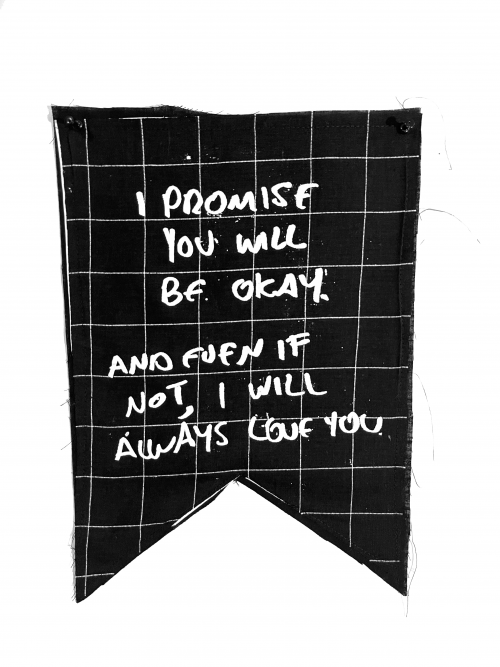 I PROMISE
YOU WILL
BE OKAY.
AND EVEN IF
NOT, I WILL
ALWAYS LOVE YOU.